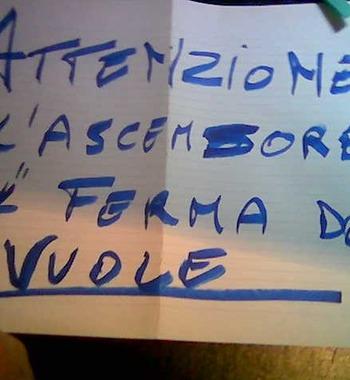 ATTENZIONE
L'ASCENSORE
FERMA DO
VUOLE